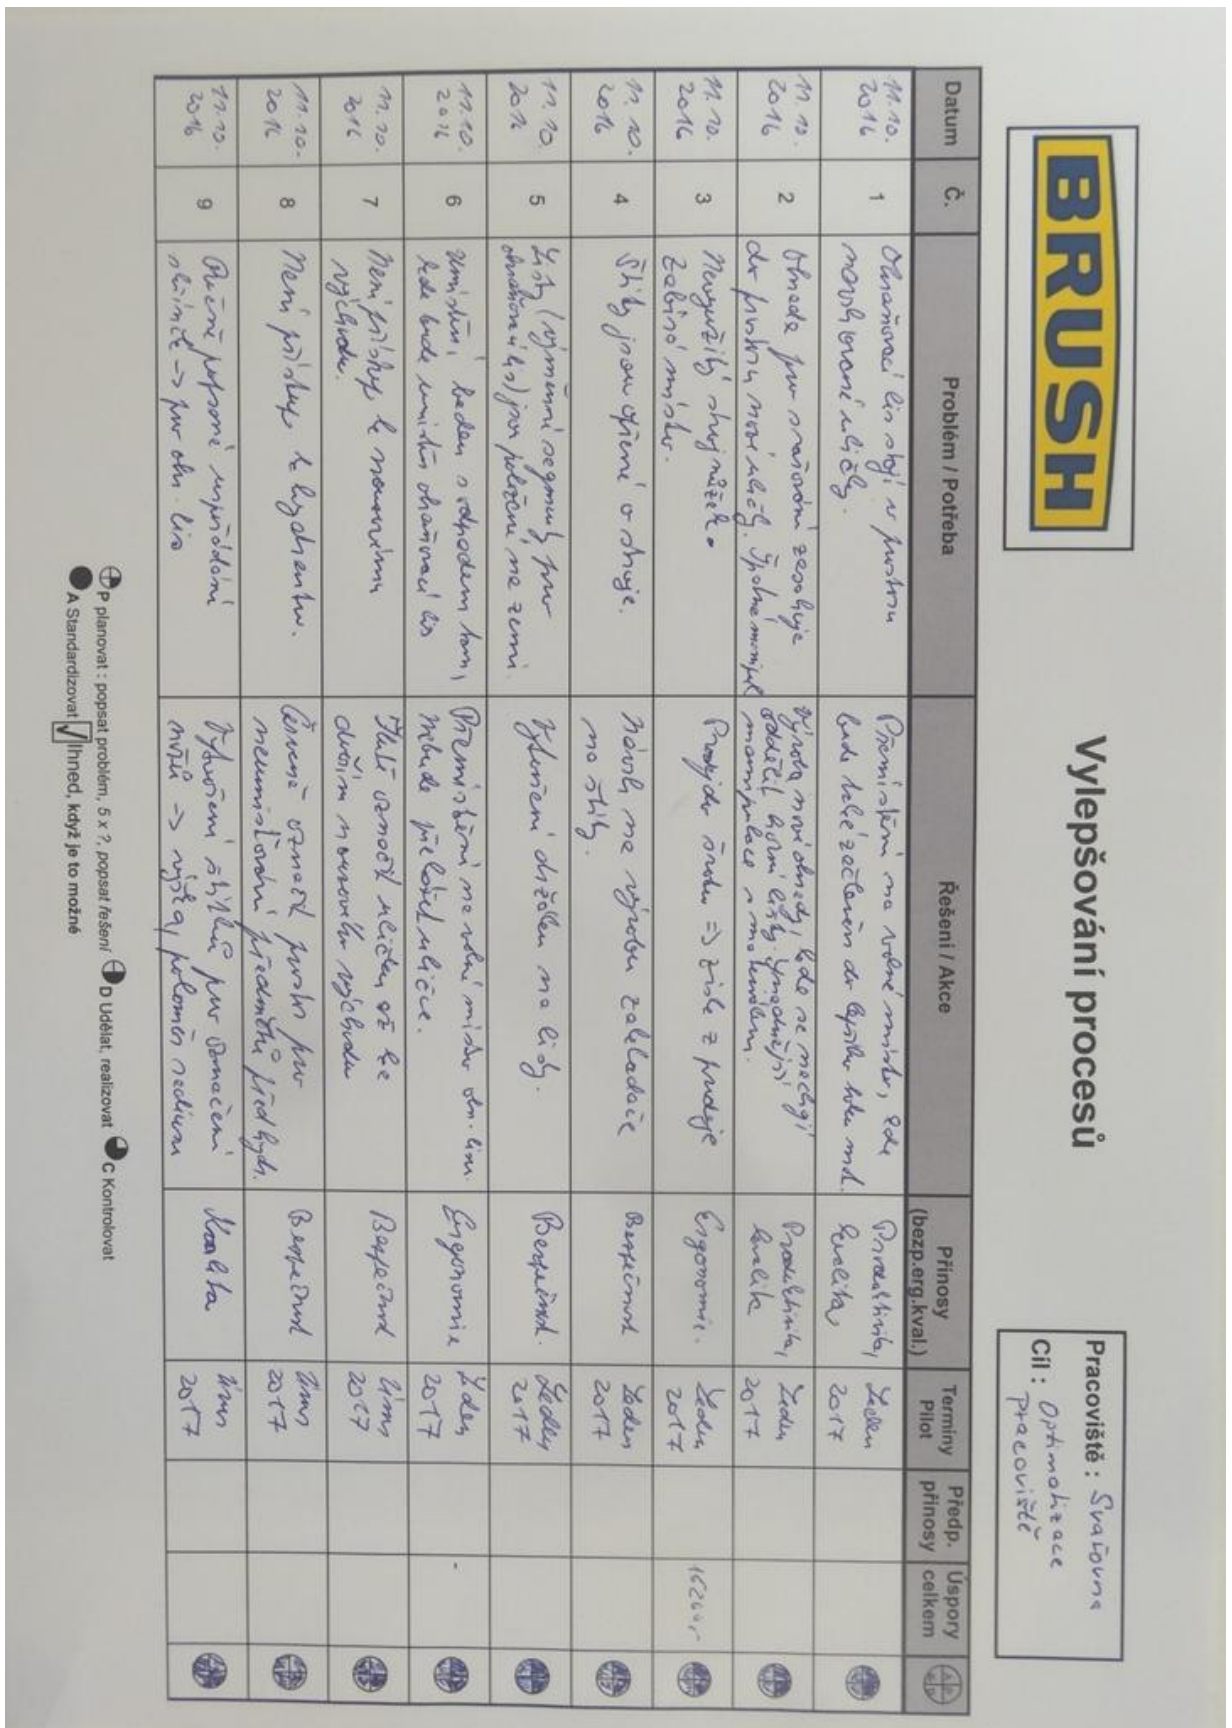 BRUSH
Vylepšování procesů
Pracoviště : Svařovna
Cíl : Optimalizace
pracoviště
Datum
Č.
Problém / Potřeba
Řešení / Akce
Přínosy
(bezp.erg.kval.)
Termíny
Pilot
Předp.
přínosy
Úspory
celkem
11.10.
2016
1
Ohraňovací lis stojí v prostoru
navrhované uličky.
Přemístění na volné místo, kde
bude také začleněn do toku mat.
Produktivita,
kvalita
Leden
2017
11.10.
2016
2
Ohrada pro svařování zasahuje
do prostoru nové uličky. Špatná
Výroba nové ohrady, kde se nechají
oddělit horní lišty.
manipulace s materiálem.
Produktivita,
kvalita
Leden
2017
11.10.
2016
3
Nevyužitý stroj nůžek
zabírá místo.
Prodej do šrotu => zisk z prodeje
Ergonomie.
Leden
2017
11.10.
2016
4
Štíty jsou opřené o stroje.
Návrh na výrobu zakladače
na štíty.
Bezpečnost
Leden
2017
11.10.
2016
5
Lišty (výměnné segmenty pro
ohraňovací lis) jsou položené na zemi.
Vytvoření držáku na lišty.
Bezpečnost.
Leden
2017
11.10.
2016
6
Umístění beden s odpadem tam,
kde bude umístěn ohraňovací lis
Přemístění na volné místo
Nebude překážet uličce.
Ergonomie
Leden
2017
11.10.
2016
7
Není přístup k nouzovému
východu.
Žlutě označit uličku až ke
dveřím nouzového východu
Bezpečnost
Únor
2017
11.10.
2016
8
Není přístup k hydrantu.
Červeně označit prostor pro
neumisťování předmětů před hydr.
Bezpečnost
Únor
2017
11.10.
2016
9
Ručně popsané uspořádání
skříně -> pro ohr. lis
Vytvoření štítků pro označení
nožů -> výška, poloměr
Kvalita
Únor
2017
P planovat : popsat problém, 5 x ?, popsat řešení D Udělat, realizovat C Kontrolovat
A Standardizovat Ihned, když je to možné